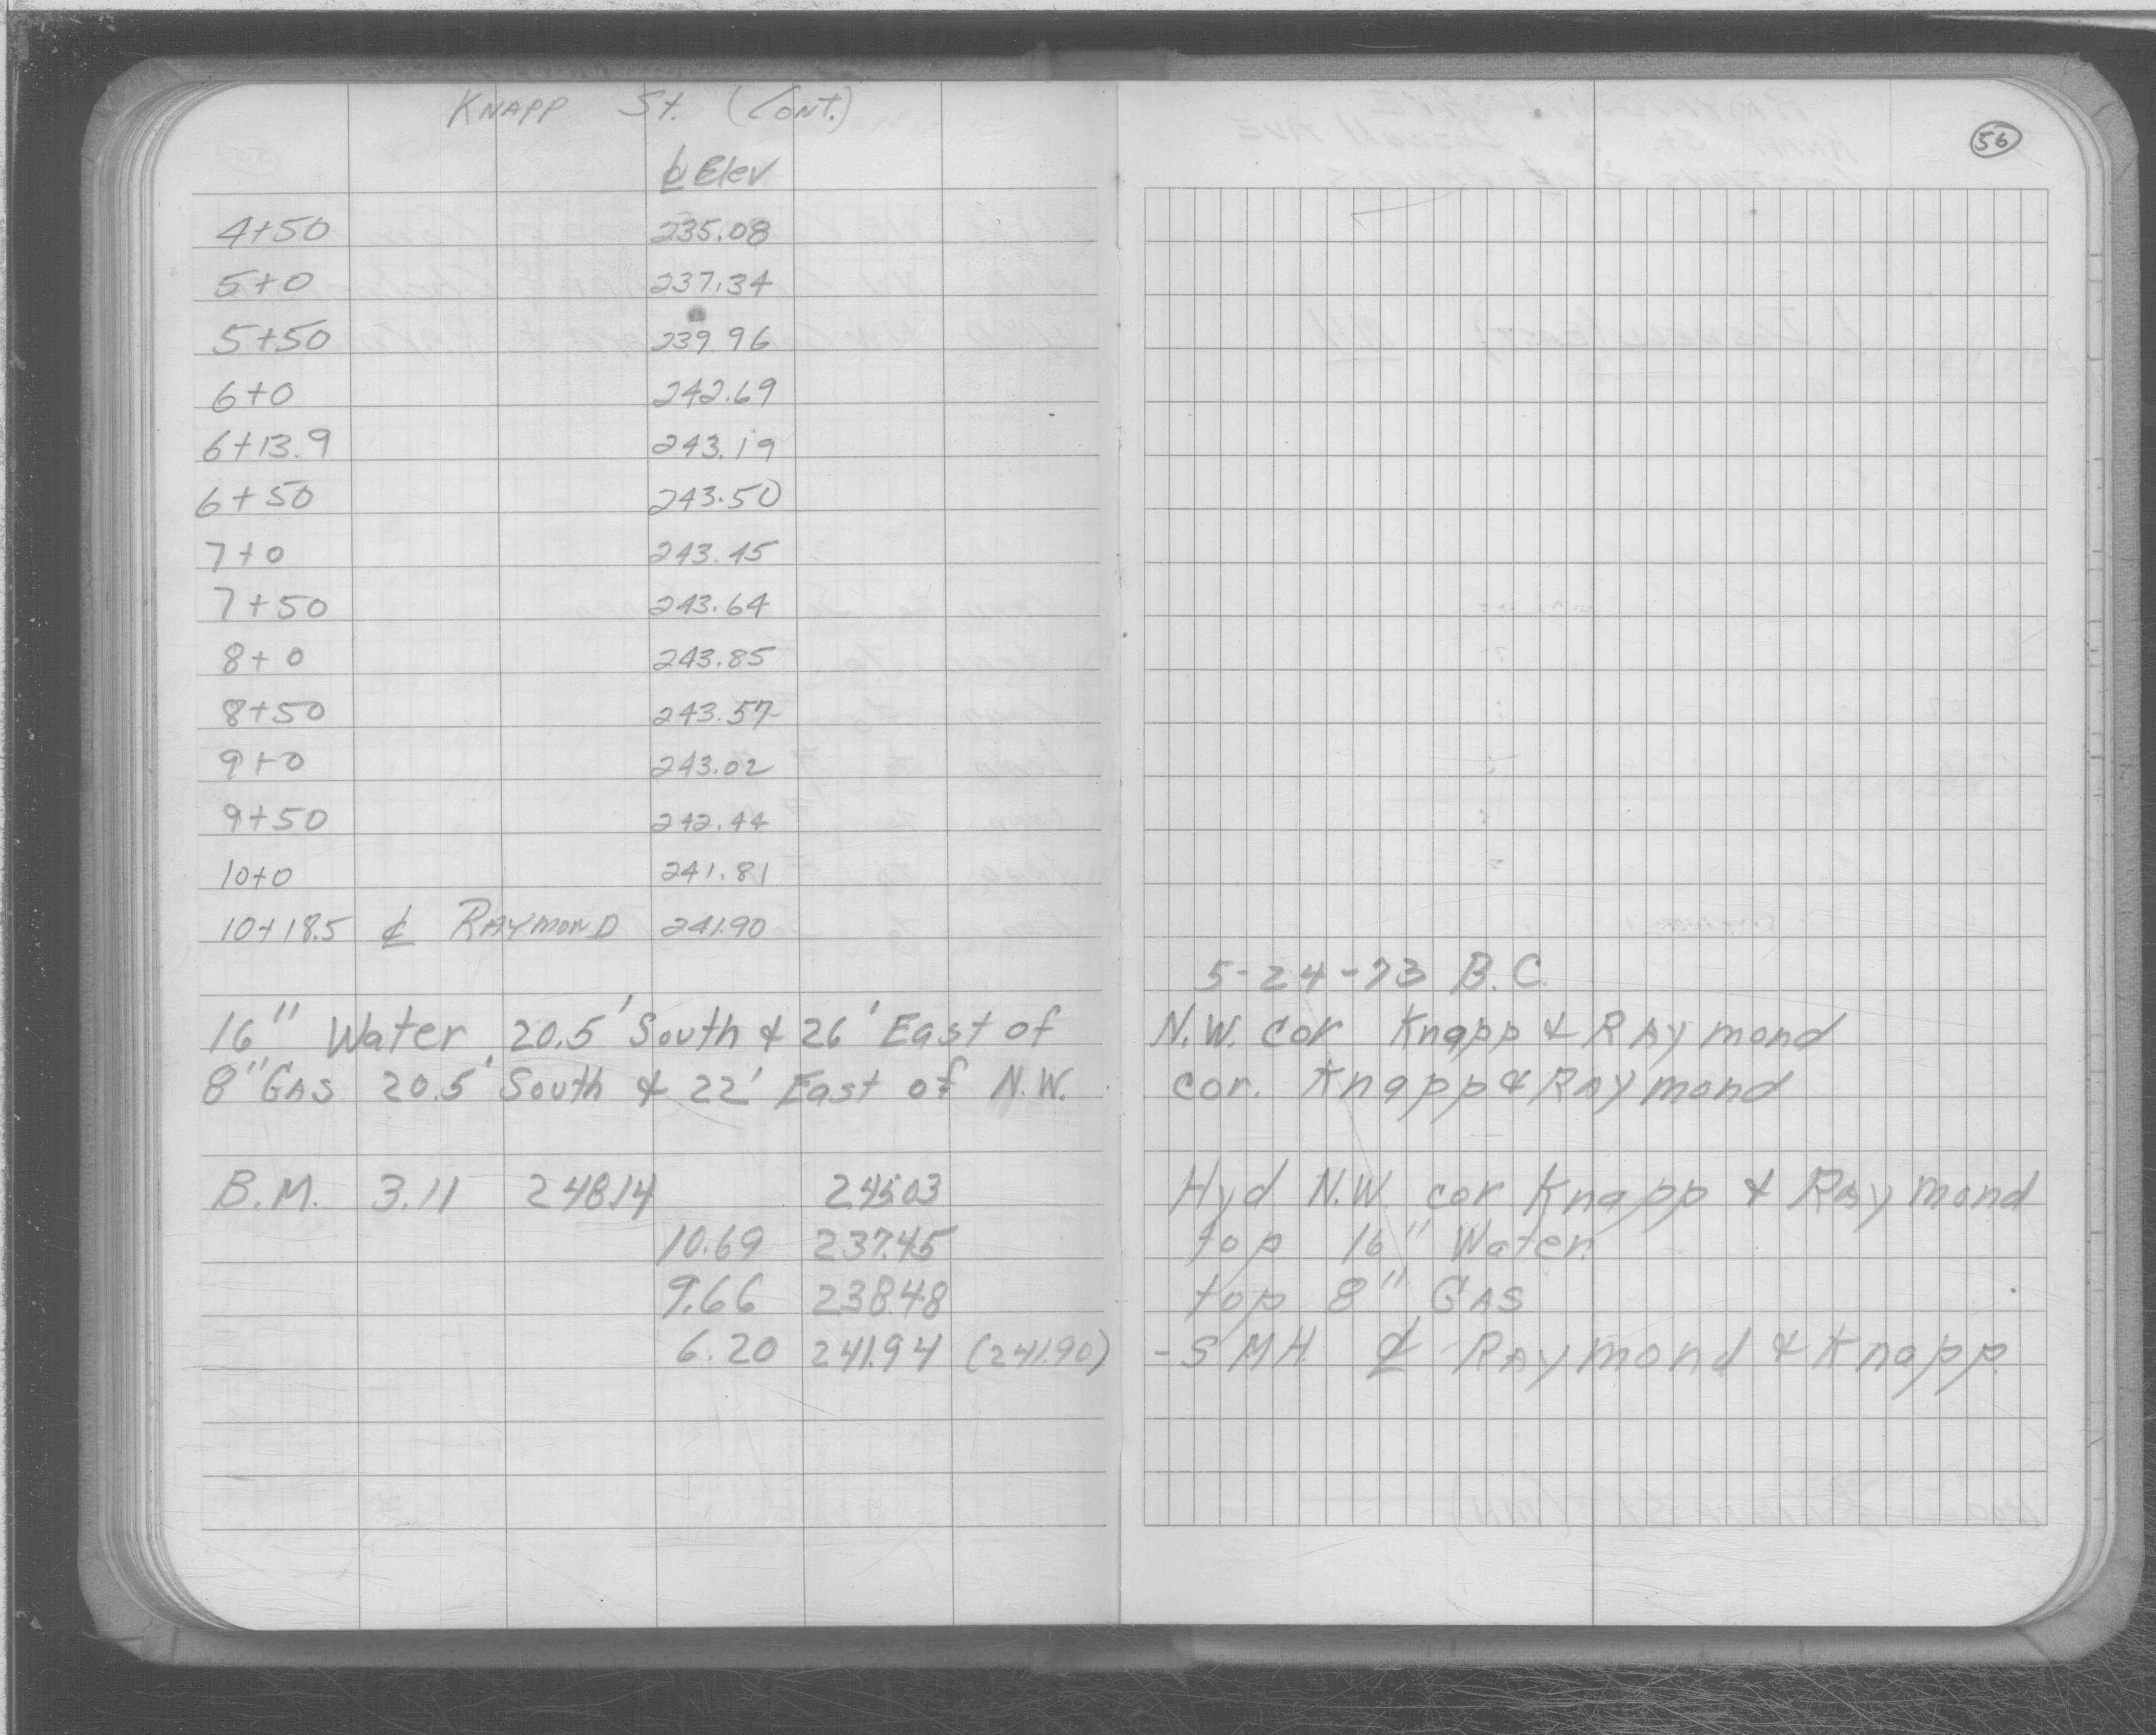 KNAPP St. (Cont.)
56
℄ Elev
4+50 235.08
5+0 237.34
5+50 239.96
6+0 242.69
6+13.9 243.19
6+50 243.50
7+0 243.45
7+50 243.64
8+0 243.85
8+50 243.57
9+0 243.02
9+50 242.44
10+0 241.81
10+18.5 ℄ RAYMOND 241.90
5-24-73 B.C.
16" Water 20.5' South & 26' East of N.W. cor Knapp & RAymond
8" GAS 20.5' South & 22' East of N.W. cor. Knapp & RAymond
B.M. 3.11 248.14 245.03 Hyd N.W. cor Knapp & RAymond
10.69 237.45 top 16" Water
9.66 238.48 top 8" GAS
6.20 241.94 (241.90) -SMH. ℄ RAymond & Knapp.